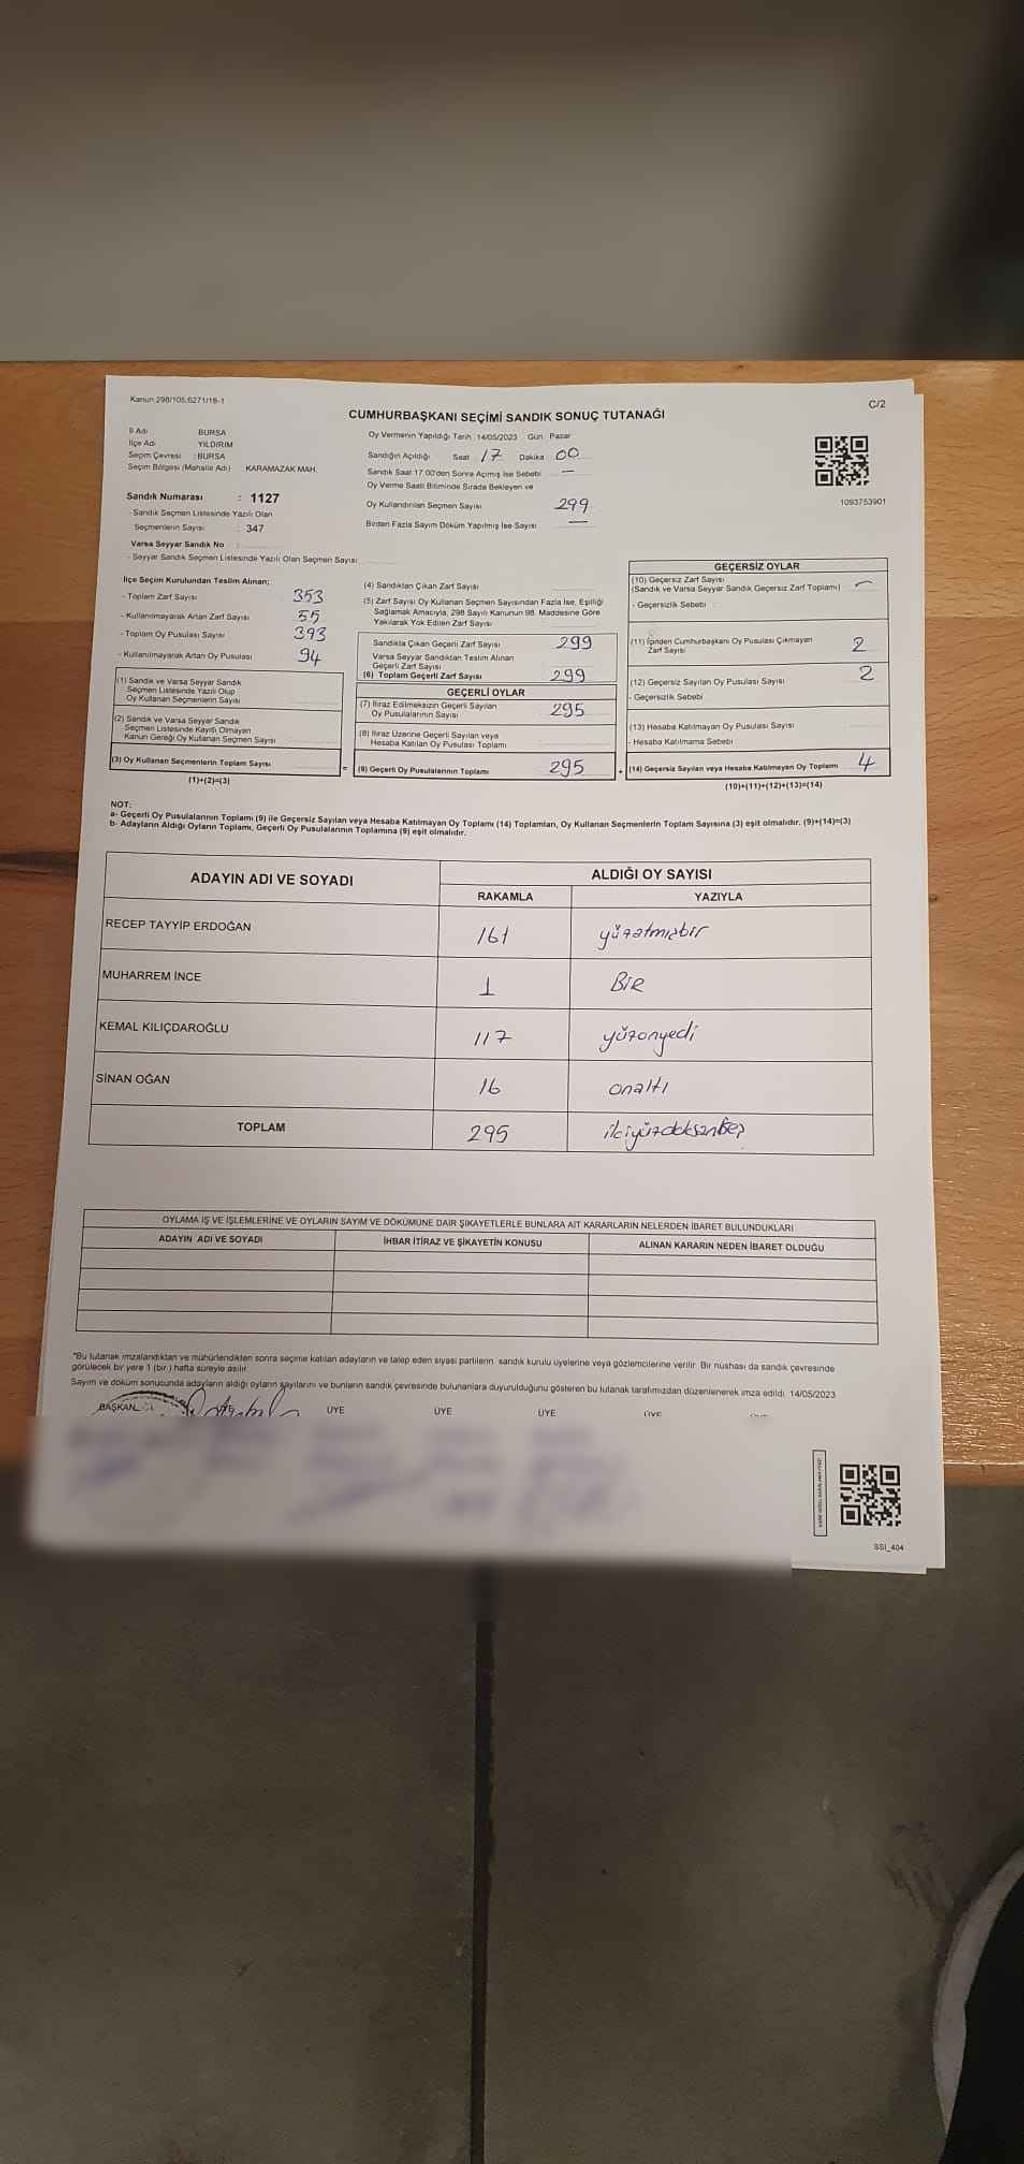 Kanun 298/105,6271/18-1
C/2
CUMHURBAŞKANI SEÇİMİ SANDIK SONUÇ TUTANAĞI
İl Adı BURSA
İlçe Adı YILDIRIM
Seçim Çevresi : BURSA
Seçim Bölgesi (Mahalle Adı) KARAMAZAK MAH.
Sandık Numarası : 1127
- Sandık Seçmen Listesinde Yazılı Olan
Seçmenlerin Sayısı : 347
Varsa Seyyar Sandık No :
- Seyyar Sandık Seçmen Listesinde Yazılı Olan Seçmen Sayısı
Oy Vermenin Yapıldığı Tarih : 14/05/2023 Gün : Pazar
Sandığın Açıldığı Saat 17 Dakika 00
Sandık Saat 17:00'den Sonra Açılmış İse Sebebi —
Oy Verme Saati Bitiminde Sırada Bekleyen ve
Oy Kullandırılan Seçmen Sayısı 299
Birden Fazla Sayım Döküm Yapılmış İse Sayısı —
1093753901
İlçe Seçim Kurulundan Teslim Alınan;
- Toplam Zarf Sayısı 353
- Kullanılmayarak Artan Zarf Sayısı 55
- Toplam Oy Pusulası Sayısı 393
- Kullanılmayarak Artan Oy Pusulası 94
(1) Sandık ve Varsa Seyyar Sandık
Seçmen Listesinde Yazılı Olup
Oy Kullanan Seçmenlerin Sayısı
(2) Sandık ve Varsa Seyyar Sandık
Seçmen Listesinde Kayıtlı Olmayan
Kanun Gereği Oy Kullanan Seçmen Sayısı
(3) Oy Kullanan Seçmenlerin Toplam Sayısı
(1)+(2)=(3)
(4) Sandıktan Çıkan Zarf Sayısı
(5) Zarf Sayısı Oy Kullanan Seçmen Sayısından Fazla İse, Eşitliği
Sağlamak Amacıyla, 298 Sayılı Kanunun 98. Maddesine Göre
Yakılarak Yok Edilen Zarf Sayısı
Sandıkta Çıkan Geçerli Zarf Sayısı 299
Varsa Seyyar Sandıktan Teslim Alınan
Geçerli Zarf Sayısı
(6) Toplam Geçerli Zarf Sayısı 299
GEÇERLİ OYLAR
(7) İtiraz Edilmeksizin Geçerli Sayılan
Oy Pusulalarının Sayısı 295
(8) İtiraz Üzerine Geçerli Sayılan veya
Hesaba Katılan Oy Pusulası Toplamı
= (9) Geçerli Oy Pusulalarının Toplamı 295
GEÇERSİZ OYLAR
(10) Geçersiz Zarf Sayısı
(Sandık ve Varsa Seyyar Sandık Geçersiz Zarf Toplamı) —
- Geçersizlik Sebebi :
(11) İçinden Cumhurbaşkanı Oy Pusulası Çıkmayan
Zarf Sayısı 2
(12) Geçersiz Sayılan Oy Pusulası Sayısı 2
- Geçersizlik Sebebi
(13) Hesaba Katılmayan Oy Pusulası Sayısı
- Hesaba Katılmama Sebebi
+ (14) Geçersiz Sayılan veya Hesaba Katılmayan Oy Toplamı 4
(10)+(11)+(12)+(13)=(14)
NOT:
a- Geçerli Oy Pusulalarının Toplamı (9) ile Geçersiz Sayılan veya Hesaba Katılmayan Oy Toplamı (14) Toplamları, Oy Kullanan Seçmenlerin Toplam Sayısına (3) eşit olmalıdır. (9)+(14)=(3)
b- Adayların Aldığı Oyların Toplamı, Geçerli Oy Pusulalarının Toplamına (9) eşit olmalıdır.
ADAYIN ADI VE SOYADI ALDIĞI OY SAYISI
RAKAMLA YAZIYLA
RECEP TAYYİP ERDOĞAN 161 yüzatmışbir
MUHARREM İNCE 1 BİR
KEMAL KILIÇDAROĞLU 117 yüzonyedi
SİNAN OĞAN 16 onaltı
TOPLAM 295 ikiyüzdoksanBeş
OYLAMA İŞ VE İŞLEMLERİNE VE OYLARIN SAYIM VE DÖKÜMÜNE DAİR ŞİKAYETLERLE BUNLARA AİT KARARLARIN NELERDEN İBARET BULUNDUKLARI
ADAYIN ADI VE SOYADI İHBAR İTİRAZ VE ŞİKAYETİN KONUSU ALINAN KARARIN NEDEN İBARET OLDUĞU
*Bu tutanak imzalandıktan ve mühürlendikten sonra seçime katılan adayların ve talep eden siyasi partilerin sandık kurulu üyelerine veya gözlemcilerine verilir. Bir nüshası da sandık çevresinde
görülecek bir yere 1 (bir) hafta süreyle asılır.
Sayım ve döküm sonucunda adayların aldığı oyların sayılarını ve bunların sandık çevresinde bulunanlara duyurulduğunu gösteren bu tutanak tarafımızdan düzenlenerek imza edildi. 14/05/2023
BAŞKAN ÜYE ÜYE ÜYE ÜYE
SSI_404